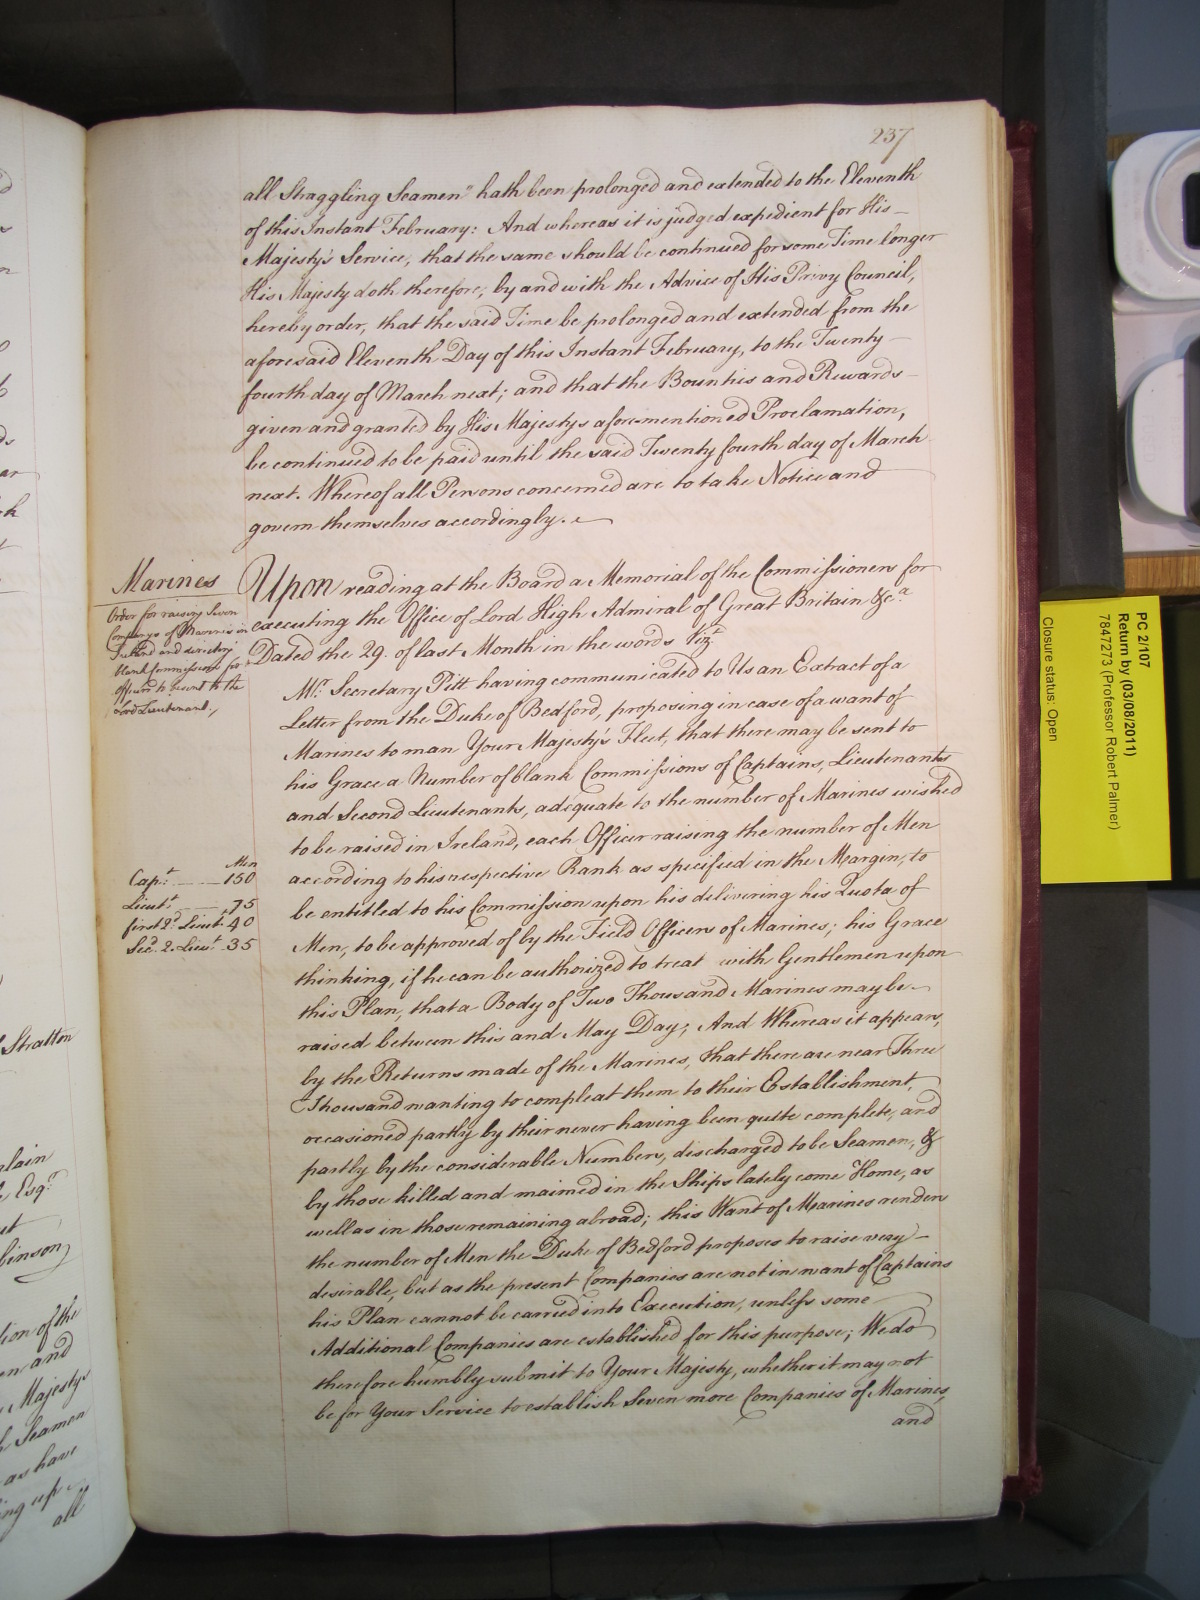 237
all Straggling Seamen" hath been prolonged and extended to the Eleventh
of this Instant February: And whereas it is judged expedient for His
Majesty's Service, that the same should be continued for some Time longer
His Majesty doth therefore, by and with the Advice of His Privy Council,
hereby order, that the said Time be prolonged and extended from the
aforesaid Eleventh Day of this Instant February, to the Twenty
fourth day of March next; and that the Bountys and Rewards
given and granted by His Majestys aforementioned Proclamation,
be continued to be paid until the said Twenty fourth day of March
next. Whereof all Persons concerned are to take Notice and
govern themselves accordingly.
Marines
Order for raising Seven
Companys of Marines in
Ireland and directing
blank Commissions for
Officers to be sent to the
Lord Lieutenant.
Upon reading at the Board a Memorial of the Commissioners for
executing the Office of Lord High Admiral of Great Britain &ca.
Dated the 29. of last Month in the words Vizt.
Mr. Secretary Pitt having communicated to Us an Extract of a
Letter from the Duke of Bedford, proposing in case of a want of
Marines to man Your Majesty's Fleet, that there may be sent to
his Grace a Number of blank Commissions of Captains, Lieutenants
and Second Lieutenants, adequate to the number of Marines wished
to be raised in Ireland, each Officer raising the number of Men
according to his respective Rank as specified in the Margin, to
be entitled to his Commission upon his delivering his Quota of
Men, to be approved of by the Field Officers of Marines; his Grace
thinking, if he can be authorized to treat with Gentlemen upon
this Plan, that a Body of Two Thousand Marines may be
raised between this and May Day; And Whereas it appears,
by the Returns made of the Marines, that there are near Three
Thousand wanting to compleat them to their Establishment,
occasioned partly by their never having been quite complete, and
partly by the considerable Numbers, discharged to be Seamen, &
by those killed and maimed in the Ships lately come Home, as
well as in those remaining abroad; this Want of Marines renders
the number of Men the Duke of Bedford proposes to raise very
desirable, but as the present Companies are not in want of Captains
his Plan cannot be carried into Execution, unless some
Additional Companies are established for this purpose; We do
therefore humbly submit to Your Majesty, whether it may not
be for Your Service to establish Seven more Companies of Marines,
and
Men
Capt. 150
Lieutt. 75
first 2d. Lieut. 40
Secd. 2. Lieut. 35
Stratton
Esqr.
tion of the
and
Majestys
Seamen
as have
ing up
all
PC 2/107
Return by (03/08/2011)
7847273 (Professor Robert Palmer)
Closure status: Open